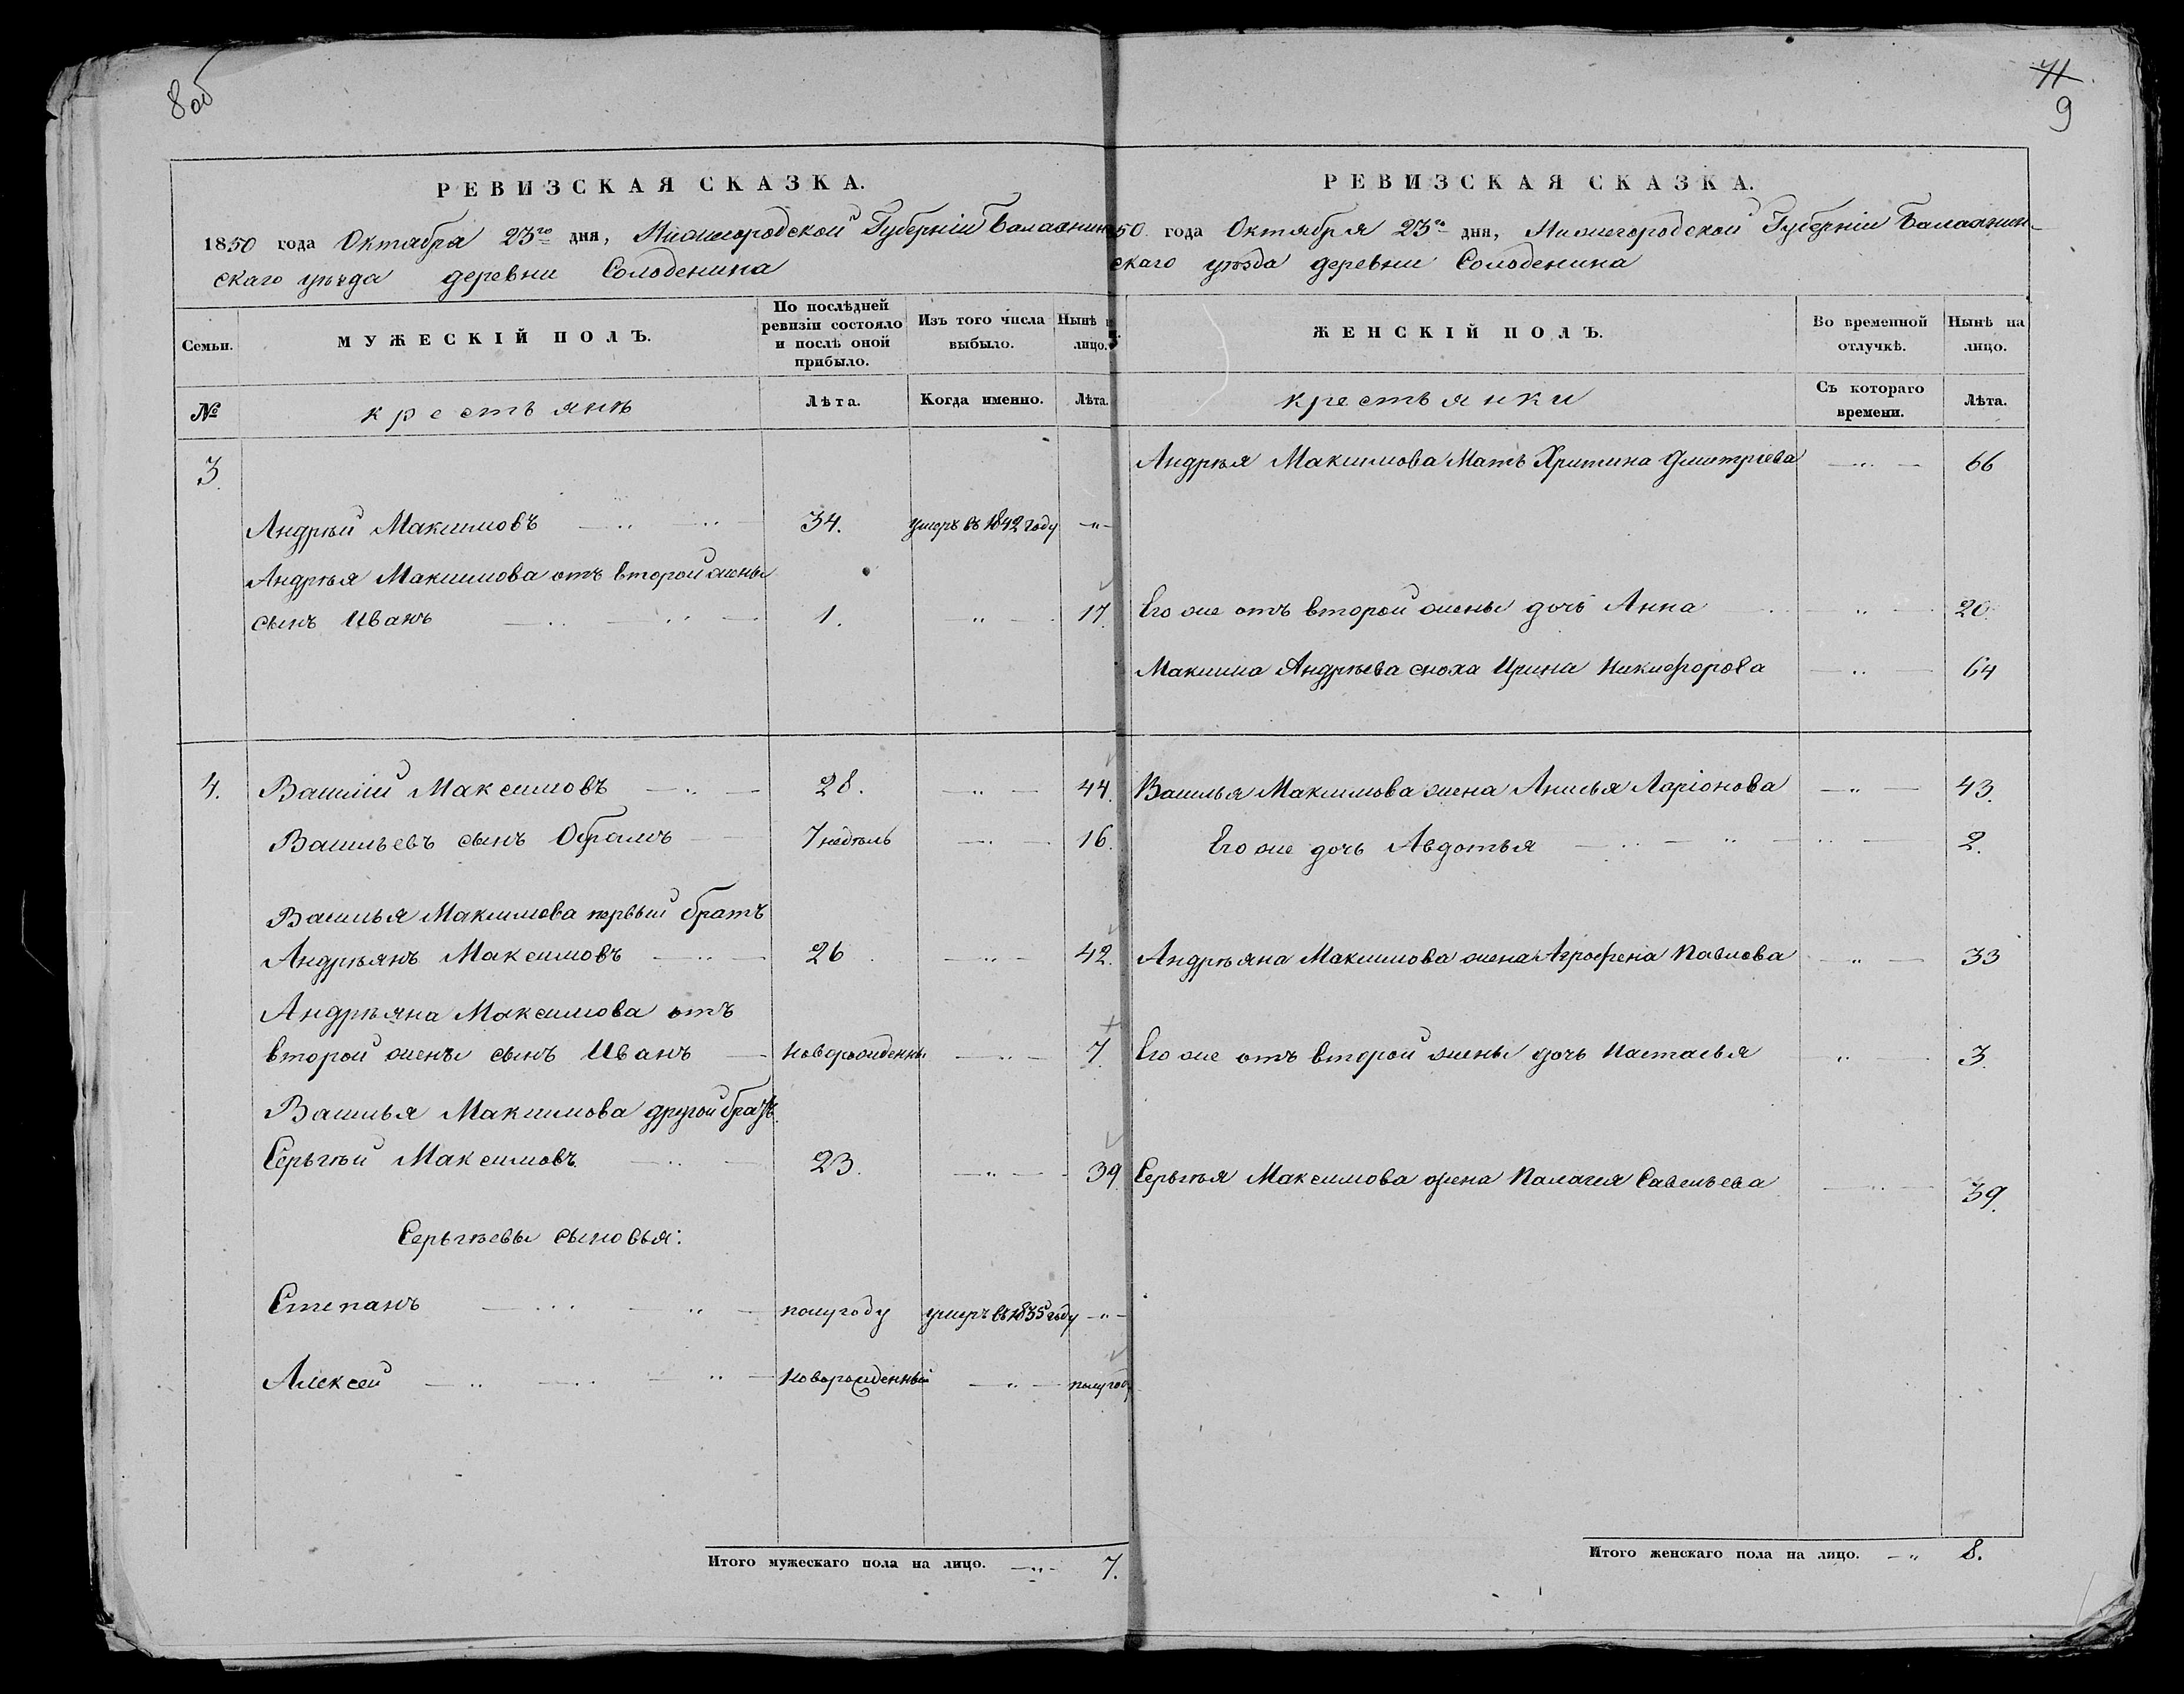 8об
РЕВИЗСКАЯ СКАЗКА.
1850 года Октября 23го дня, Нижегородской Губерніи Балахнин
скаго уѣзда деревни Солоденина
Семьи.
МУЖЕСКІЙ ПОЛЪ.
По послѣдней ревизіи состояло и послѣ оной прибыло.
Изъ того числа выбыло.
Нынѣ на лицо.
№
крестьянъ
Лѣта.
Когда именно.
Лѣта.
3
Андрѣй Максимовъ 34. умеръ въ 1842 году
Андрѣя Максимова отъ второй жены
сынъ Иванъ 1. 17.
4. Василій Максимовъ 28. 44.
Васильевъ сынъ Обрамъ 7 недѣль 16.
Василья Максимова первый братъ
Андрѣянъ Максимовъ 26 42.
Андрѣяна Максимова отъ
второй жены сынъ Иванъ новорожденны 7.
Василья Максимова другой братъ
Серьгѣй Максимовъ 23. 39
Серьгѣевы сыновья:
Степанъ полугоду умеръ въ 1835 году
Алексей новорожденный полугоду
Итого мужескаго пола на лицо. 7.
71
9
РЕВИЗСКАЯ СКАЗКА.
50 года Октября 23го дня, Нижегородской Губерніи Балахнин-
скаго уѣзда деревни Солоденина
ЖЕНСКІЙ ПОЛЪ.
Во временной отлучкѣ.
Нынѣ на лицо.
крестьянки
Съ котораго времени.
Лѣта.
Андрѣя Максимова Мать Хритина Дмитріева 66
Его же отъ второй жены дочь Анна 20.
Максима Андрѣева сноха Ирина Никифорова 64
Василья Максимова жена Анисья Ларіонова 43.
Его же дочь Авдотья 2.
Андрѣяна Максимова жена Аграфена Павлова 33
Его же отъ второй жены дочь Настасья 3.
Серьгѣя Максимова жена Палагея Савельева 39.
Итого женскаго пола на лицо. 8.